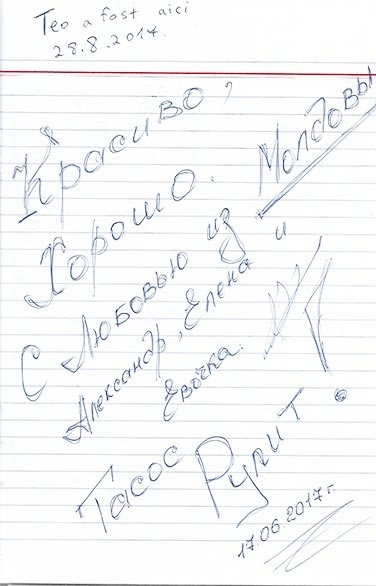 Teo a fost aici
28.8.2014.
Красиво,
Хорошо.
С Любовью из Молдовы
Александр, Елена и
Евочка.
Тасос Рулит!
17.06.2017г